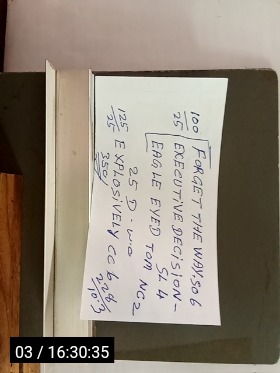 100/25 FORGET THE WAY.SO 6
EXECUTIVE DECISION-
SL 4
EAGLE EYED TOM NC2
25 D. WO
125/25 EXPLOSIVELY CC 6,28/
350/ 2/10.3
03 / 16:30:35